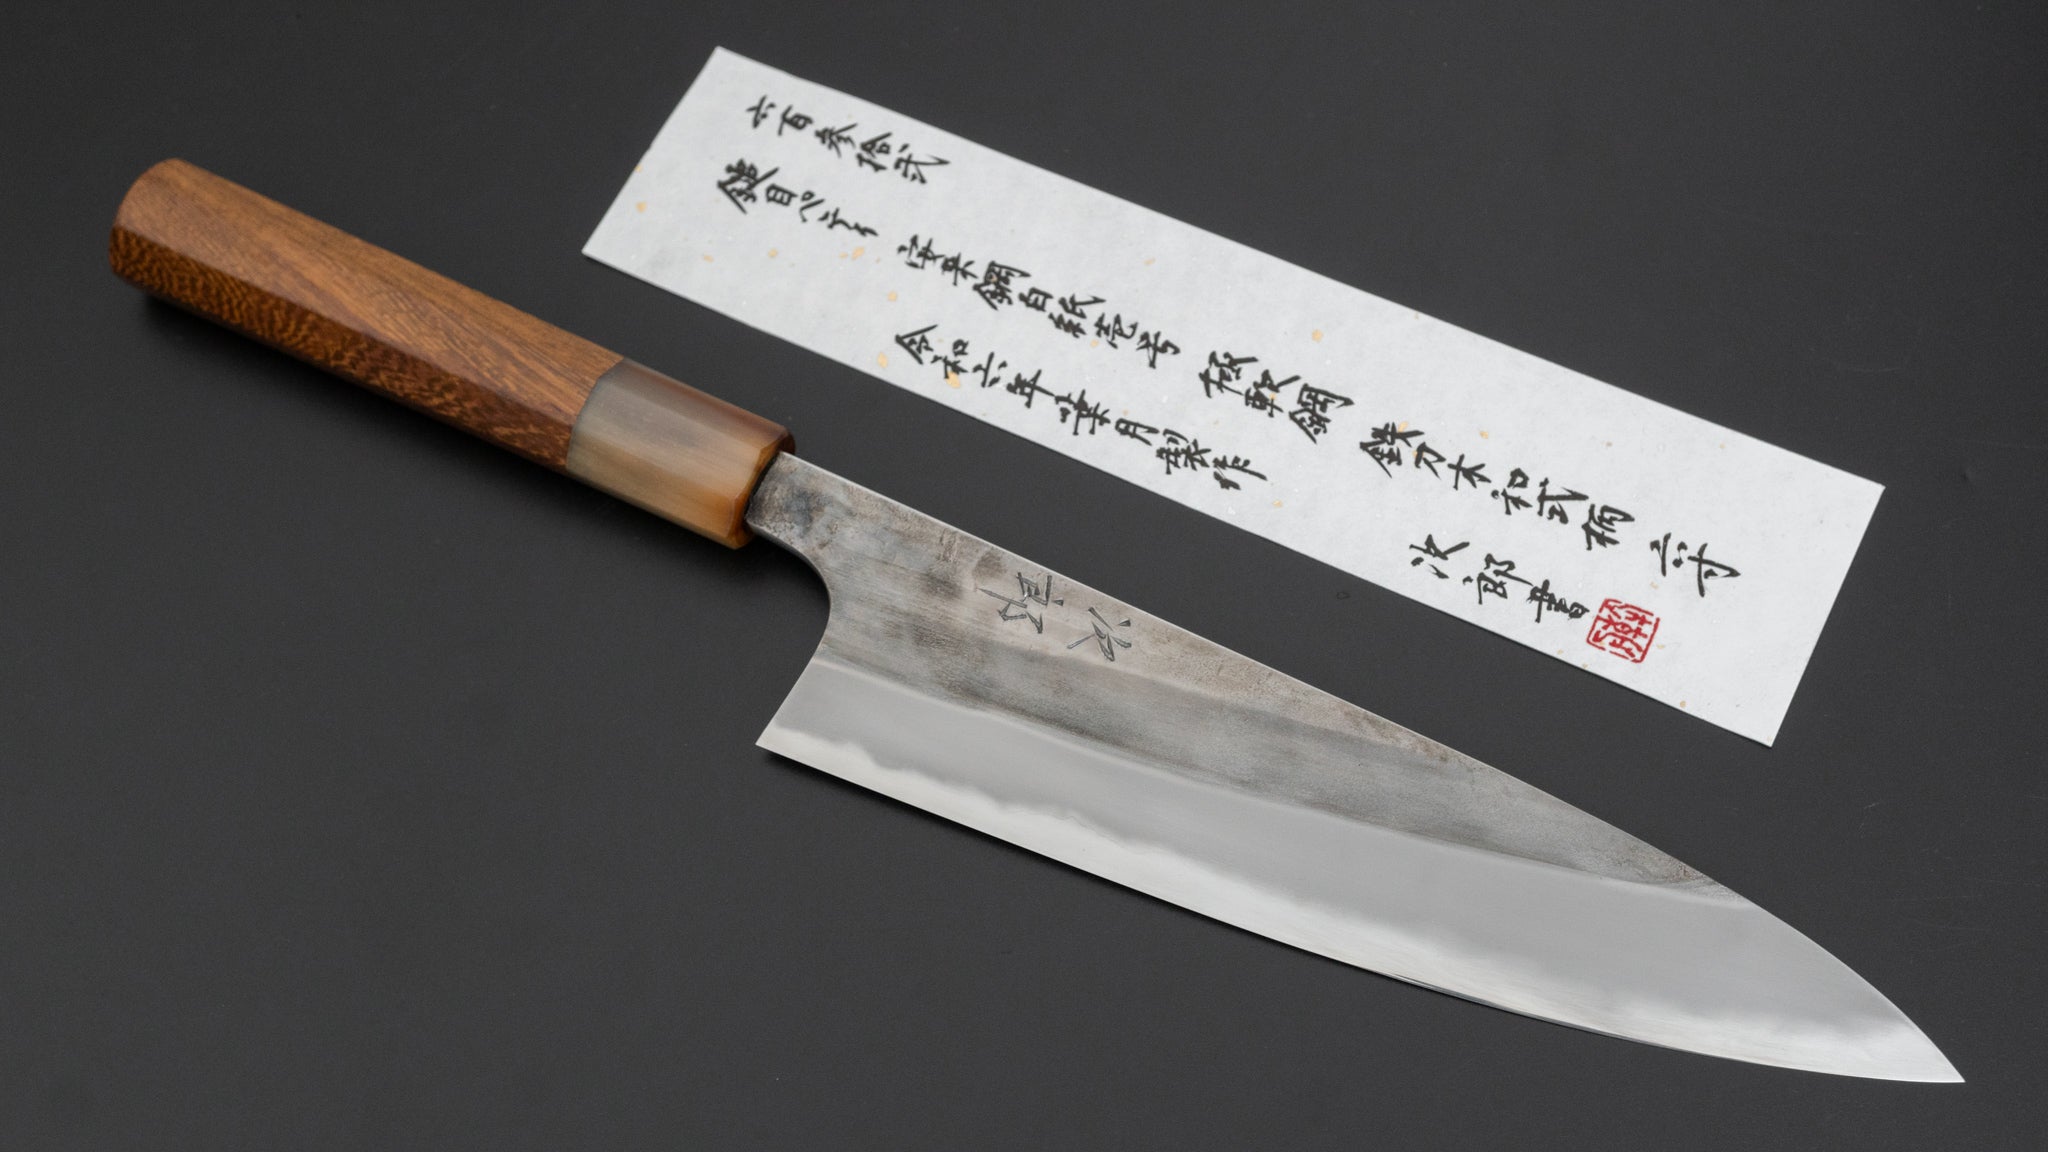 六百参拾弐
鎚目ペティ 安来鋼白紙壱号 極軟鋼 鉄刀木和式柄 六寸
令和六年葉月製作 次郎書
次郎